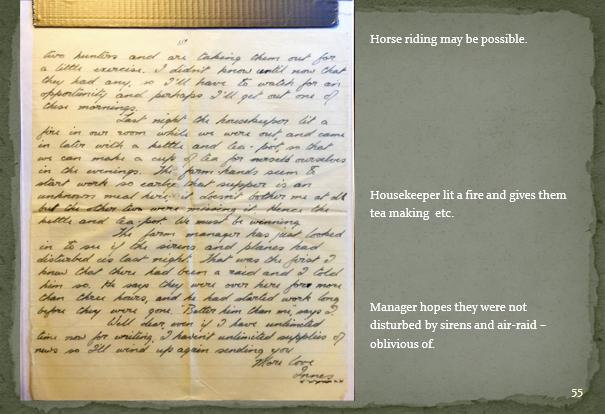 two hunters and are taking them out for
a little exercise. I didn't know until now that
they had any, so I'll have to watch for an
opportunity and perhaps I'll get out one of
these mornings.
Last night the housekeeper lit a
fire in our room while we were out, and came
in later with a kettle and tea-pot, so that
we can make a cup of tea for ourselves
in the evenings. The farm hands seem to
start work so early that supper is an
unknown meal here; it doesn't bother me at all
but the other two were missing it. Hence the
kettle and tea-pot. We must be winning.
The farm manager has just looked
in to see if the sirens and planes had
disturbed us last night. That was the first I
knew that there had been a raid and I told
him so. He says they were over here for more
than three hours, and he had started work long
before they were gone. Better him than me, says I.
Well dear, even if I have unlimited
time now for writing, I haven't unlimited supplies of
news so I'll wind up again sending you
More love
Innes
Horse riding may be possible.
Housekeeper lit a fire and gives them
tea making etc.
Manager hopes they were not
disturbed by sirens and air-raid –
oblivious of.
55